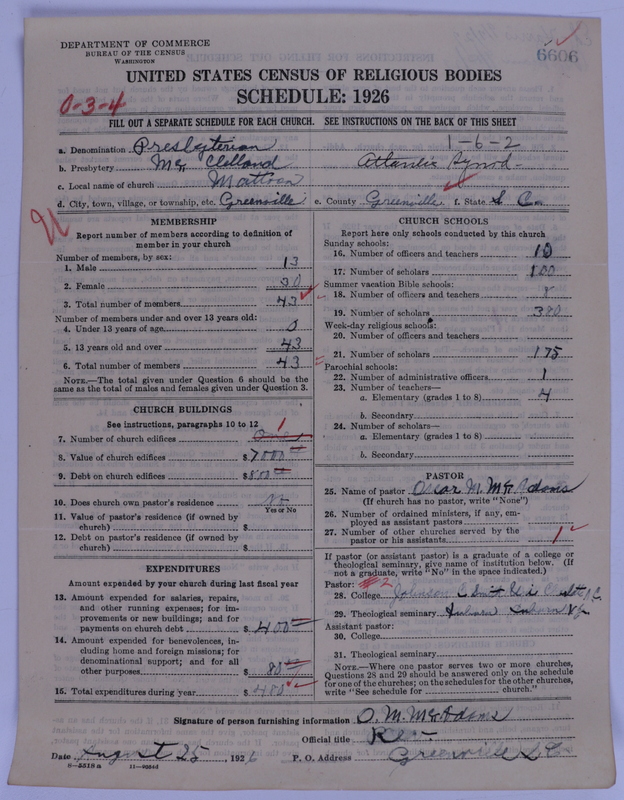 DEPARTMENT OF COMMERCE
BUREAU OF THE CENSUS
WASHINGTON
6606
UNITED STATES CENSUS OF RELIGIOUS BODIES
SCHEDULE: 1926
0-3-4
FILL OUT A SEPARATE SCHEDULE FOR EACH CHURCH. SEE INSTRUCTIONS ON THE BACK OF THIS SHEET
1-6-2
a. Denomination Presbyterian
b. Presbytery Mc Clelland Atlantic Synod
c. Local name of church Mattoon
d. City, town, village, or township, etc. Greenville e. County Greenville f. State S. C.
MEMBERSHIP
Report number of members according to definition of
member in your church
Number of members, by sex:
1. Male 13
2. Female 30
3. Total number of members 43
Number of members under and over 13 years old:
4. Under 13 years of age 0
5. 13 years old and over 43
6. Total number of members 43
NOTE.—The total given under Question 6 should be
the same as the total of males and females given under Question 3.
CHURCH BUILDINGS
See instructions, paragraphs 10 to 12
7. Number of church edifices 1
8. Value of church edifices $7000
9. Debt on church edifices $500
10. Does church own pastor's residence No
Yes or No
11. Value of pastor's residence (if owned by
church) $
12. Debt on pastor's residence (if owned by
church) $
EXPENDITURES
Amount expended by your church during last fiscal year
13. Amount expended for salaries, repairs,
and other running expenses; for im-
provements or new buildings; and for
payments on church debt $400
14. Amount expended for benevolences, in-
cluding home and foreign missions; for
denominational support; and for all
other purposes $80
15. Total expenditures during year $480
CHURCH SCHOOLS
Report here only schools conducted by this church
Sunday schools:
16. Number of officers and teachers 10
17. Number of scholars 100
Summer vacation Bible schools:
18. Number of officers and teachers 8
19. Number of scholars 380
Week-day religious schools:
20. Number of officers and teachers
21. Number of scholars 175
Parochial schools:
22. Number of administrative officers 1
23. Number of teachers—
a. Elementary (grades 1 to 8) 4
b. Secondary
24. Number of scholars—
a. Elementary (grades 1 to 8)
b. Secondary
PASTOR
25. Name of pastor Oscar M. McAdams
(If church has no pastor, write "None")
26. Number of ordained ministers, if any, em-
ployed as assistant pastors
27. Number of other churches served by the
pastor or his assistants 1
If pastor (or assistant pastor) is a graduate of a college or
theological seminary, give name of institution below. (If
not a graduate, write "No" in the space indicated.)
Pastor: 2
28. College Johnson C. Smith N.C.
29. Theological seminary Auburn Auburn N.Y.
Assistant pastor:
30. College
31. Theological seminary
NOTE.—Where one pastor serves two or more churches,
Questions 28 and 29 should be answered only on the schedule
for one of the churches; on the schedules for the other churches,
write "See schedule for church."
Signature of person furnishing information O. M. McAdams
Official title Rev.
Date August 25, 1926 P. O. Address Greenville S. C.
8-5518 a